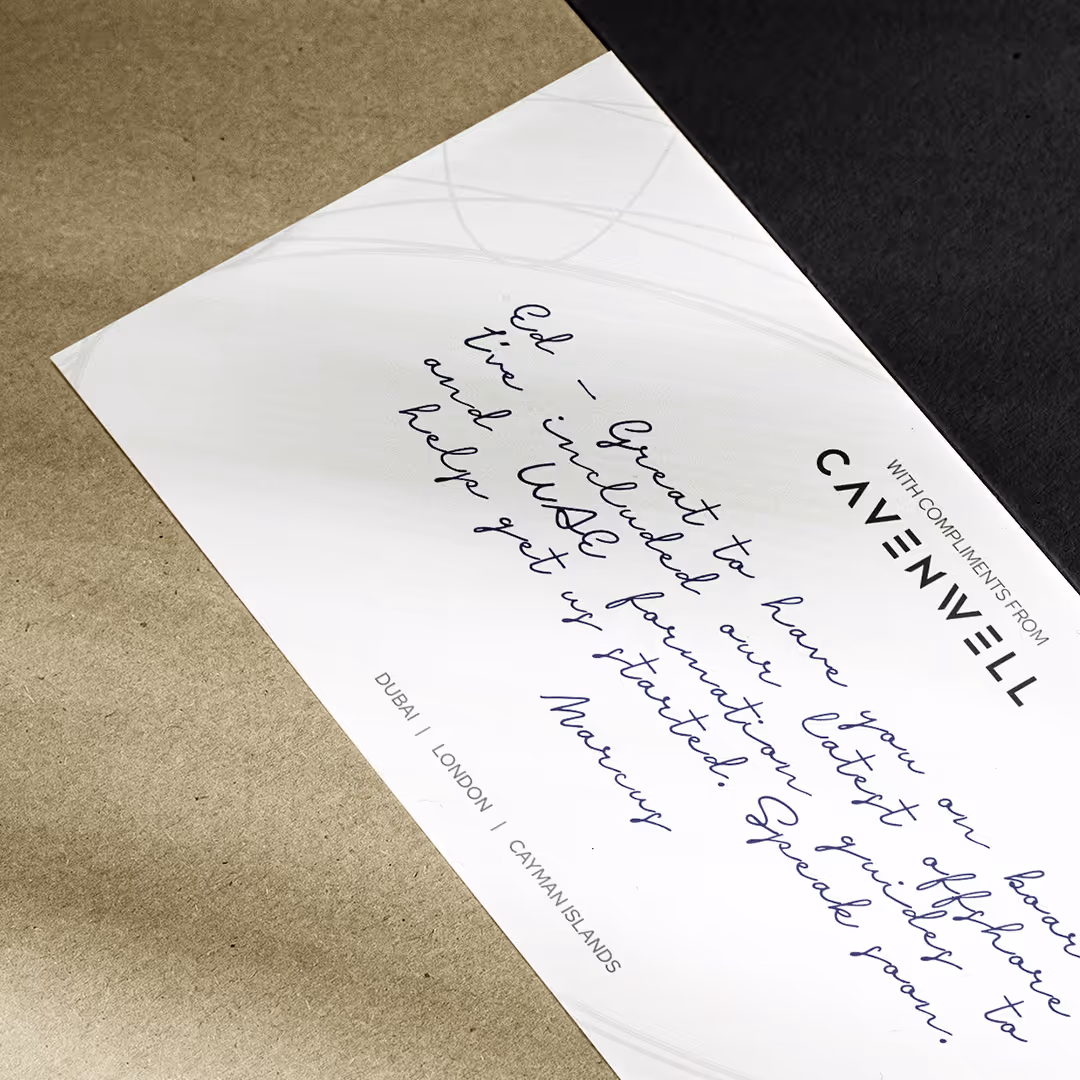 WITH COMPLIMENTS FROM
CAVENWELL
Ed – Great to have you on boar
I've included our latest offshore
and UAE formation guides to
help get us started. Speak soon.
Marcus
DUBAI | LONDON | CAYMAN ISLANDS